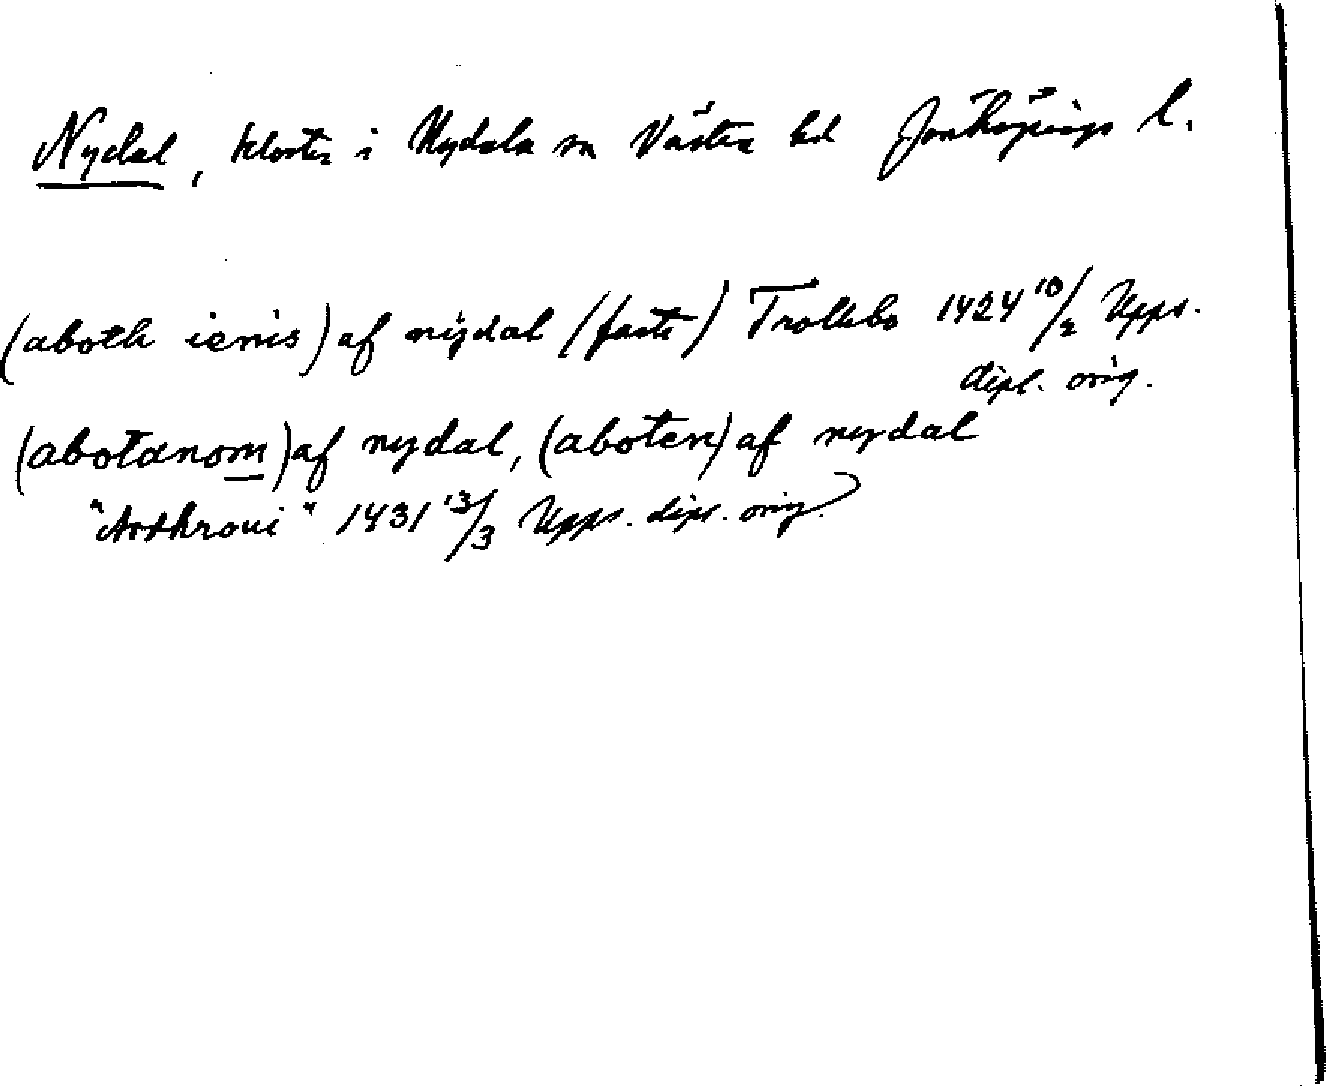 Nydal, kloster i Nydala sn Västra hd Jönköpings l.
(aboth ienis) af nijdal (faste) Trollebo 1424 10/2 Upps.
dipl. orig.
(abotanom) af nydal, (aboten) af nydal
1431 13/3 Upps. dipl. orig.